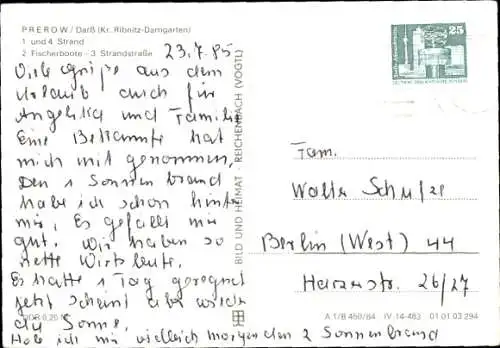 PREROW/Darß (Kr. Ribnitz-Damgarten)
1 und 4 Strand
2 Fischerboote – 3 Strandstraße
23.7.85
Viele Grüße aus dem
Urlaub auch für
Angelika und Familie
Eine Bekannte hat
mich mit genommen.
Den 1 Sonnenbrand
habe ich schon hinter
mir. Es gefällt mir
gut. Wir haben so
nette Wirtsleute.
Es hatte 1 Tag geregnet
jetzt scheint aber wieder
die Sonne.
Hole ich mir vielleich morgen den 2 Sonnenbrand
BILD UND HEIMAT · REICHENBACH (VOGTL)
25
Fam.
Walter Schulze
Berlin (West) 44
26/27
DDR 0,20 M
A 1/B 450/84 IV-14-483 01 01 03 294